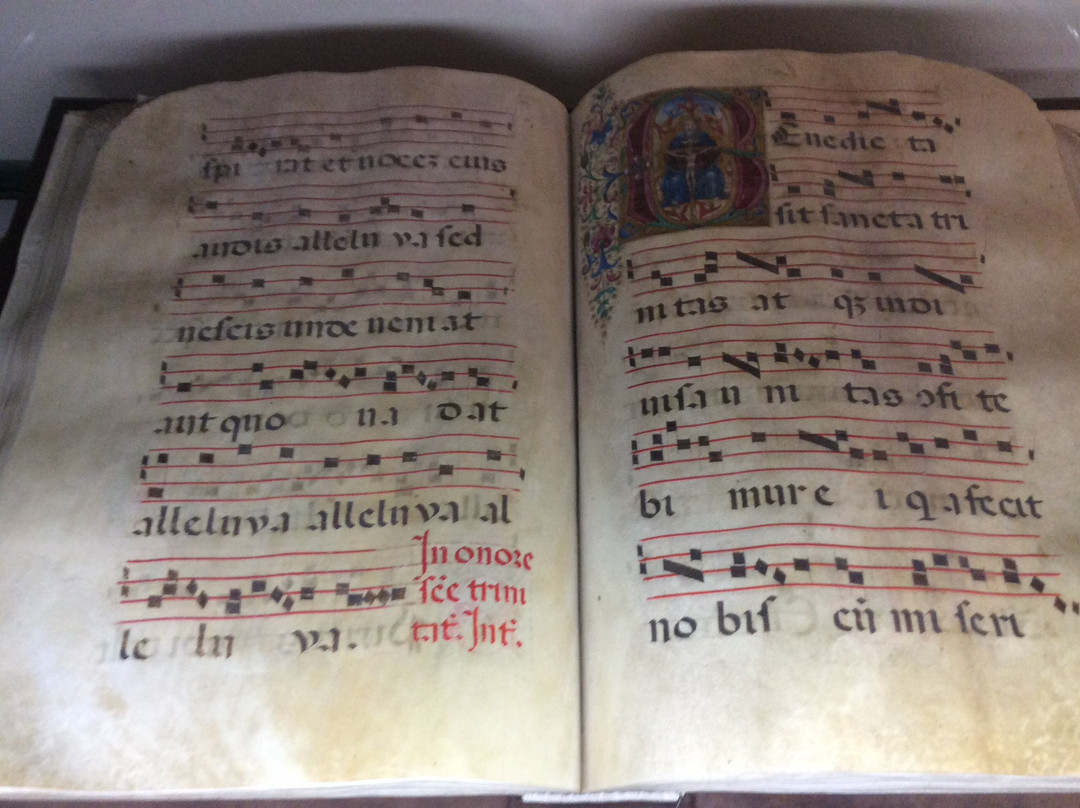 spi rat et vocez eius
audis allelu ya sed
nescis unde veni at
aut quo va dat
alleluya alleluya al
le lu ya.
In onore
scē trini
tat. Int.
Benedic ta
sit sancta tri
ni tas at qȝ indi
uisa u ni tas ɔfi te
bi mur e i q a fecit
no bis cū mi seri